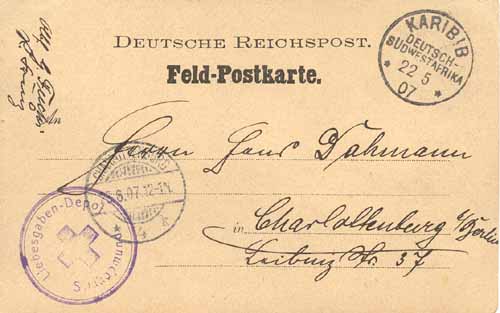 DEUTSCHE REICHSPOST.
Feld-Postkarte.
KARIBIB
DEUTSCH-
SÜDWESTAFRIKA
22 5
07
Herrn Hans Dahmann
in Charlottenburg b/Berlin
Leibniz Str. 37
6.07.12-1N.
Liebesgaben-Depot